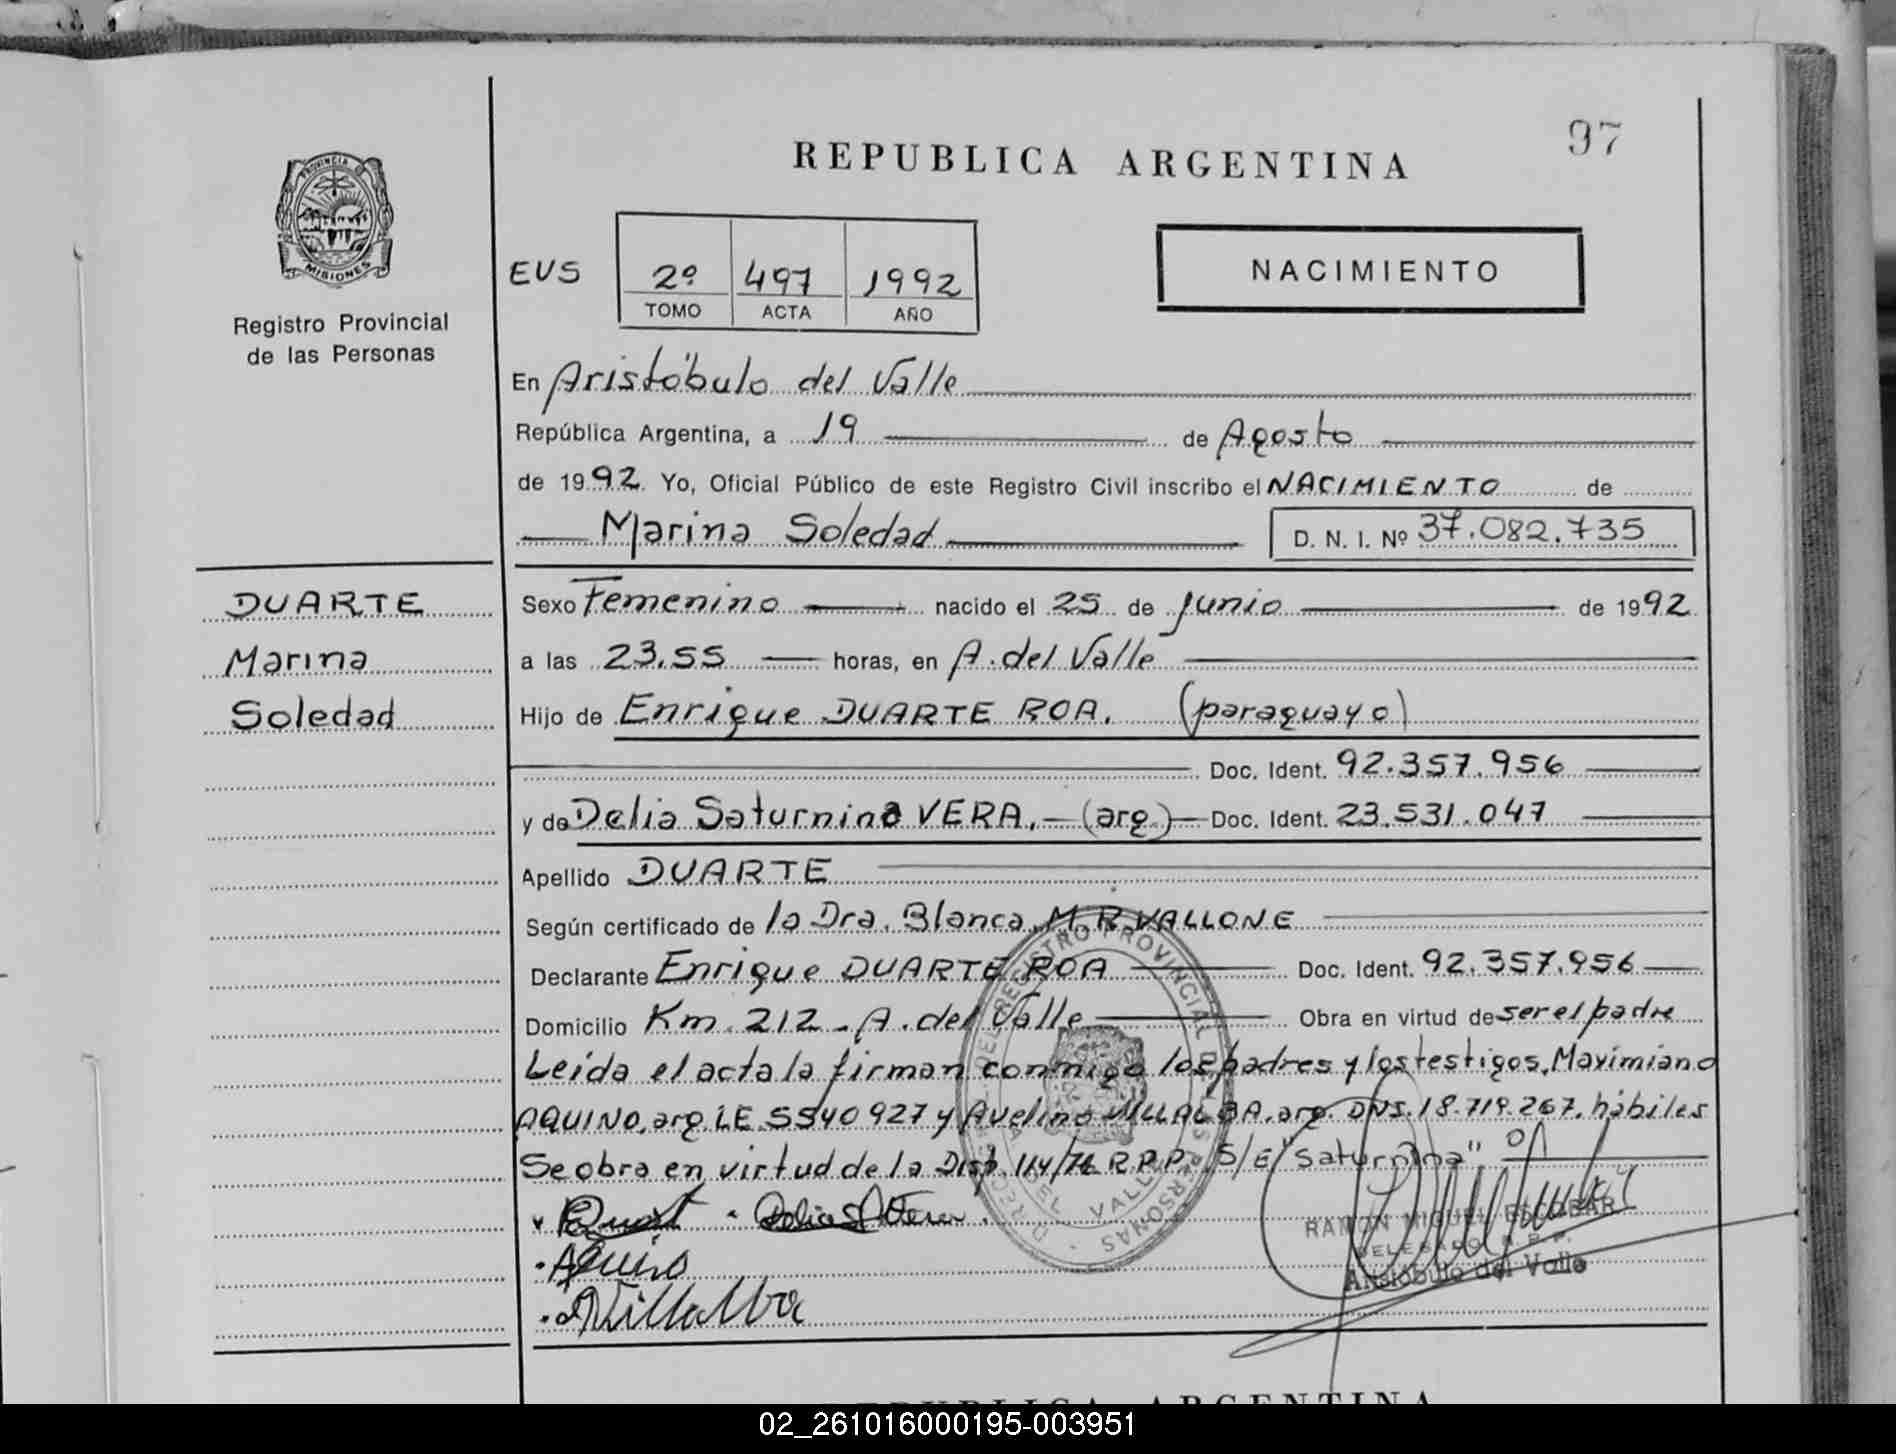 97
REPUBLICA ARGENTINA
PROVINCIA D
MISIONES
Registro Provincial
de las Personas
EUS
2º 497 1992
TOMO ACTA AÑO
NACIMIENTO
En Aristóbulo del Valle
República Argentina, a 19 de Agosto
de 1992. Yo, Oficial Público de este Registro Civil inscribo el NACIMIENTO de
Marina Soledad D. N. I. Nº 37.082.735
DUARTE
Marina
Soledad
Sexo Femenino nacido el 25 de Junio de 1992
a las 23.55 horas, en A. del Valle
Hijo de Enrique DUARTE ROA. (paraguayo)
Doc. Ident. 92.357.956
y de Delia Saturnina VERA.- (arg.) Doc. Ident. 23.531.047
Apellido DUARTE
Según certificado de la Dra. Blanca M.R. VALLONE
Declarante Enrique DUARTE ROA Doc. Ident. 92.357.956
Domicilio Km. 212 - A. del Valle Obra en virtud de ser el padre
Leída el acta la firman conmigo los padres y los testigos, Maximiano
AQUINO, arg. LE. 5540927 y Avelino VILLALBA. arg. DNI. 18.719.267. hábiles
Se obra en virtud de la Disp. 114/76 R.P.P. S/E "Saturnina"
Aquino
AVillalba
RAMON MIGUEL ESCOBAR
DELEGADO R. P. P.
Aristóbulo del Valle
REPUBLICA ARGENTINA
02_261016000195-003951